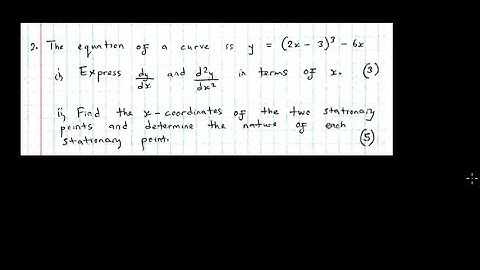 2. The equation of a curve is y = (2x - 3)³ - 6x
i) Express dy/dx and d²y/dx² in terms of x. (3)
ii) Find the x-coordinates of the two stationary
points and determine the nature of each
stationary point. (5)